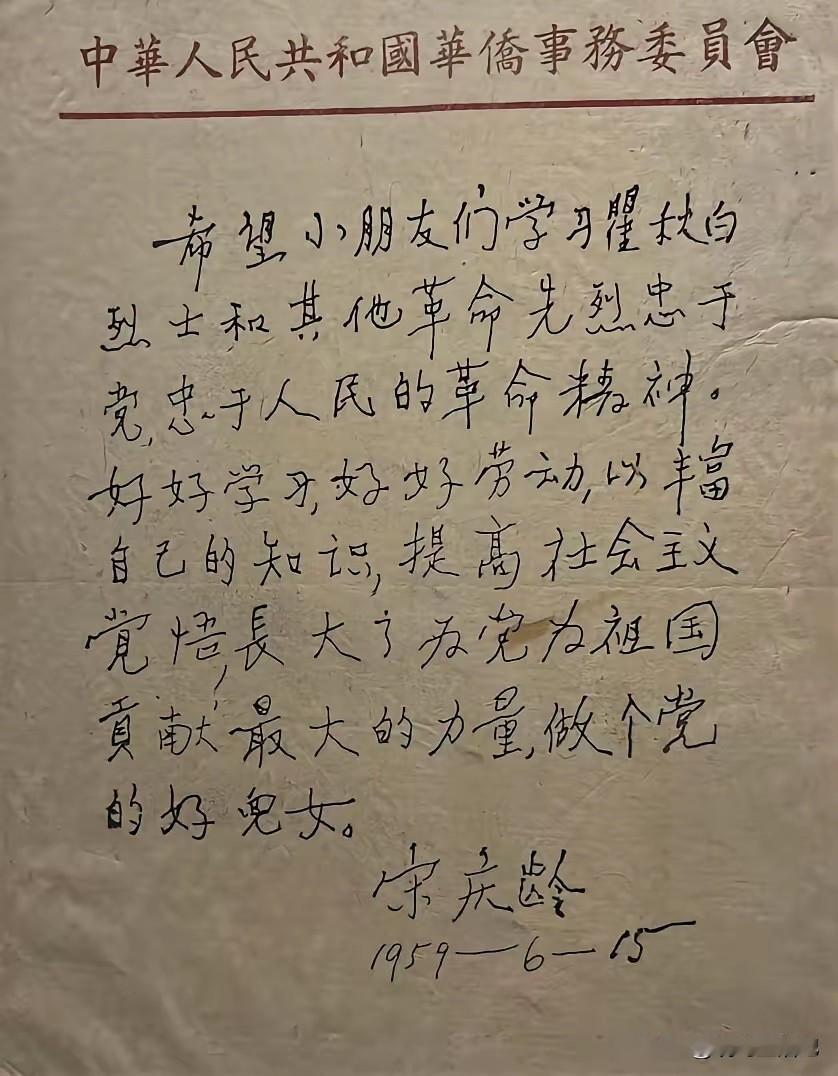 中華人民共和國華僑事務委員會
希望小朋友们学习瞿秋白
烈士和其他革命先烈忠于
党,忠于人民的革命精神。
好好学习,好好劳动,以丰富
自己的知识,提高社会主义
觉悟,長大了为党为祖国
貢献最大的力量,做个党
的好兒女。
宋庆龄
1959—6—15